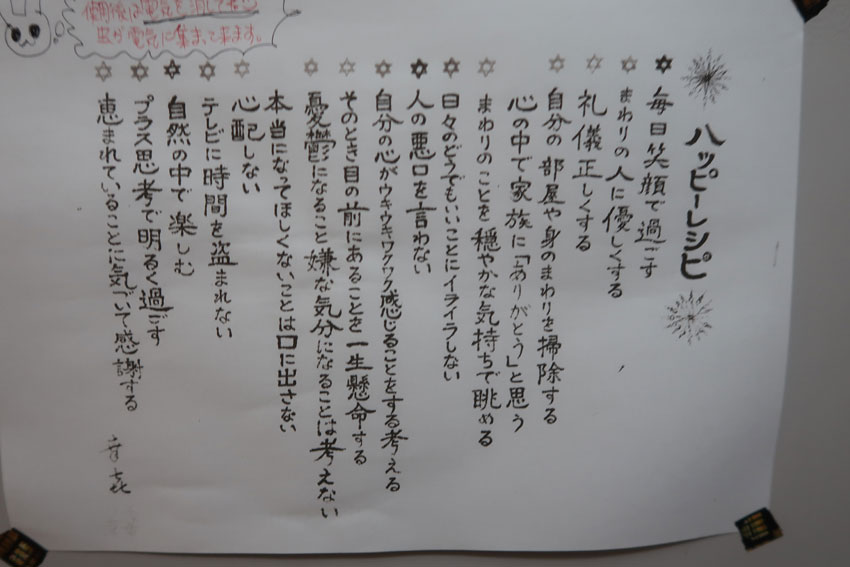 ハッピーレシピ
毎日笑顔で過ごす
まわりの人に優しくする
礼儀正しくする
自分の部屋や身のまわりを掃除する
心の中で家族に「ありがとう」と思う
まわりのことを穏やかな気持ちで眺める
日々のどうでもいいことにイライラしない
人の悪口を言わない
自分の心がウキウキワクワク感じることをする考える
そのとき目の前にあることを一生懸命する
憂鬱になること嫌な気分になることは考えない
本当になってほしくないことは口に出さない
心配しない
テレビに時間を盗まれない
自然の中で楽しむ
プラス思考で明るく過ごす
恵まれていることに気づいて感謝する
使用後は電気を消して
虫が電気に集まって来ます。